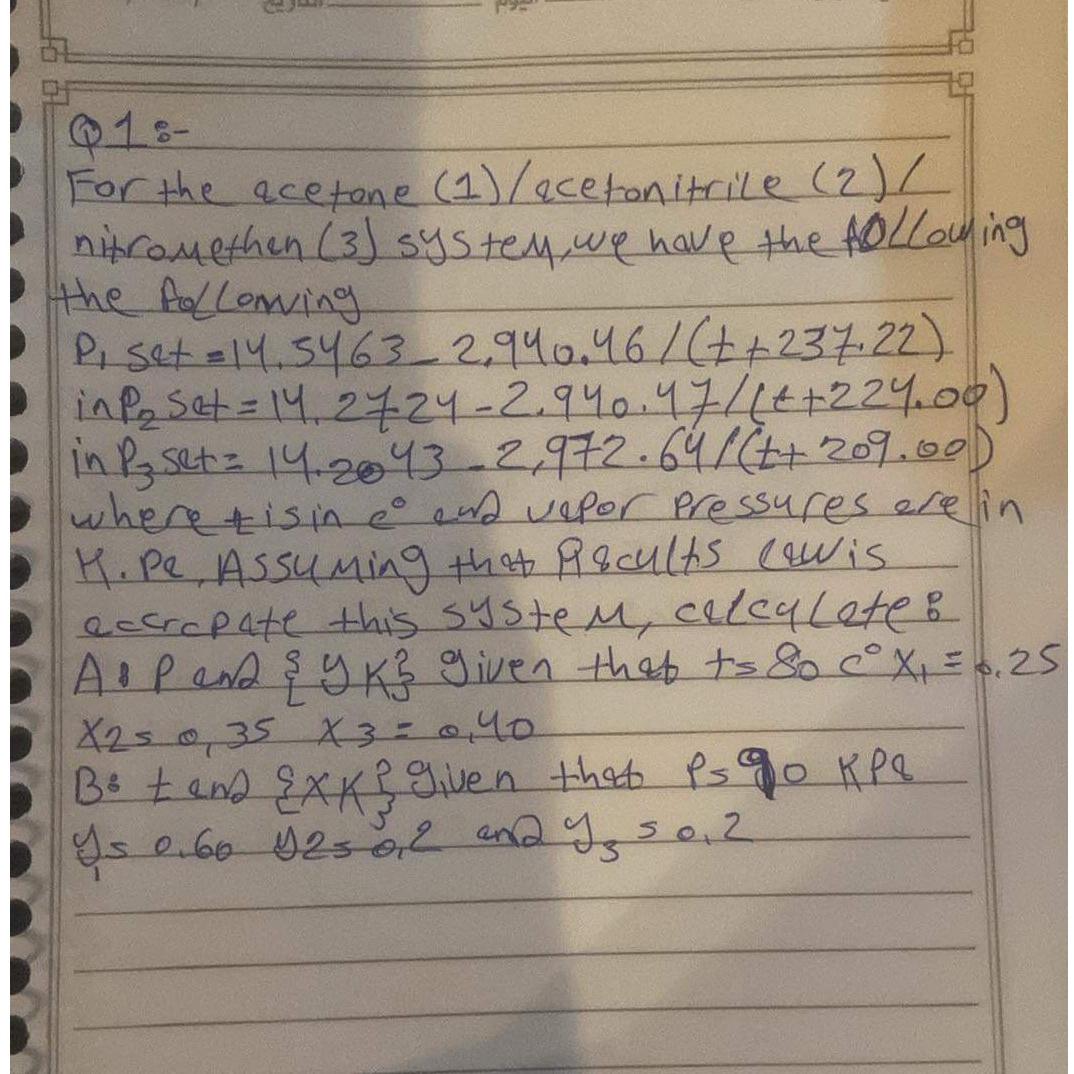 اليوم التاريخ
Q1:-
For the acetone (1)/acetonitrile (2)/
nitromethen (3) system, we have the following
the following
P1 sat = 14.5463 - 2,940.46/(t+237.22)
inP2 sat = 14.2724 - 2.940.47/(t+224.00)
inP3 sat = 14.2043 - 2,972.64/(t+209.00)
where t is in c° and vapor pressures are in
K.Pa, Assuming that Raoults law is
this system, calculate:
A: P and {yK} given that t= 80 c° X1 = 0.25
X2= 0,35 X3 = 0,40
B: t and {XK} given that P= 90 KPa
y1= 0.60 y2= 0,2 and y3 = 0,2